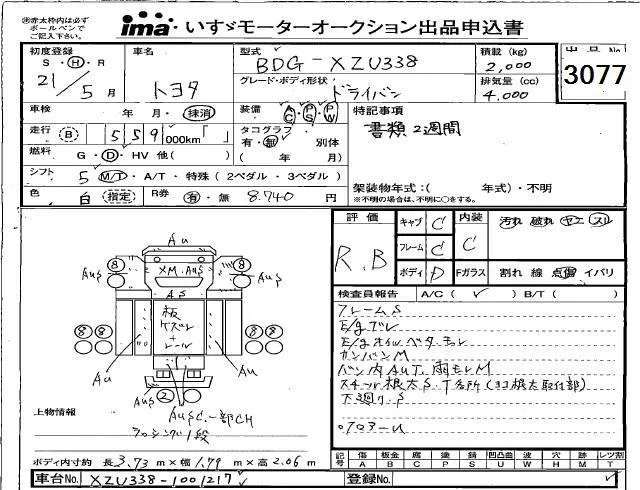 ㊟赤太枠内は必ず
ボールペンで
ご記入下さい。
ima いすゞモーターオークション出品申込書
初度登録 S・H・R 21／5月
車名 トヨタ
型式 BDG-XZU338
グレード・ボディ形状 ドライバン
積載(kg) 2,000
排気量(cc) 4,000
出品No 3077
車検 年 月・抹消
装備 AC PS PW
特記事項
書類2週間
走行 B 559,000km「 」
タコグラフ 有・無 別体
( 年 月)
燃料 G・D・HV 他( )
シフト 5 M/T・A/T・特殊(2ペダル・3ペダル)
架装物年式:( 年式)・不明
※不明の場合は、不明に○をする。
色 白 指定
R券 有・無 8,740 円
評価 R.B
キャブ C
フレーム C
ボディ D
内装 C
Fガラス
汚れ 破れ ヤニ スリ
割れ 線 点傷 イバリ
検査員報告 A/C( ✓ ) B/T( )
フレームS
E/gブレ
E/gオイルベタモレ
カンバンM
バン内AUT.雨モレM
スチール根太S.T多所(ヨコ根太取付部)
下廻り.S
Au
AuS
XM.AuS
AuS
A.S
8
8
8
8
8
8
板
ケズレ
+
レール
Au
Au
AuS
2
AuSC.一部CH
ラッシング1段
上物情報
ボディ内寸約 長3.73m×幅1.79m×高2.06m
記号
傷 板金 腐 塗装 錆 凹凸曲 波 穴 跡 レツ割
A B C P S U W H M T
車台No. XZU338-1001217
登録No.